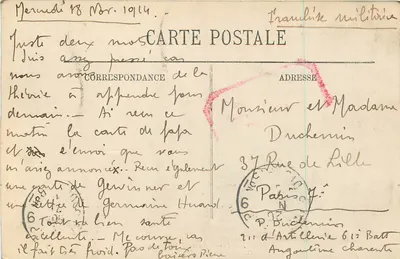 Mercredi 18 Nov. 1914.
Franchise militaire
CARTE POSTALE
CORRESPONDANCE
ADRESSE
Juste deux mots
suis assez pressé car
nous avons de la
théorie à apprendre pour
demain. — Ai reçu ce
matin la carte de papa
et l'envoi que vous
m'aviez annoncé. Reçu également
une carte de et
une lettre de Germaine Huard
Tout va bien santé
excellente. —
il fait très froid. Pas de
Pierre
Monsieur et Madame
Duchemin
37 Rue de Lille
Paris 7e
P. Duchemin
21e d'Artillerie 61e Batt
Angoulême Charente